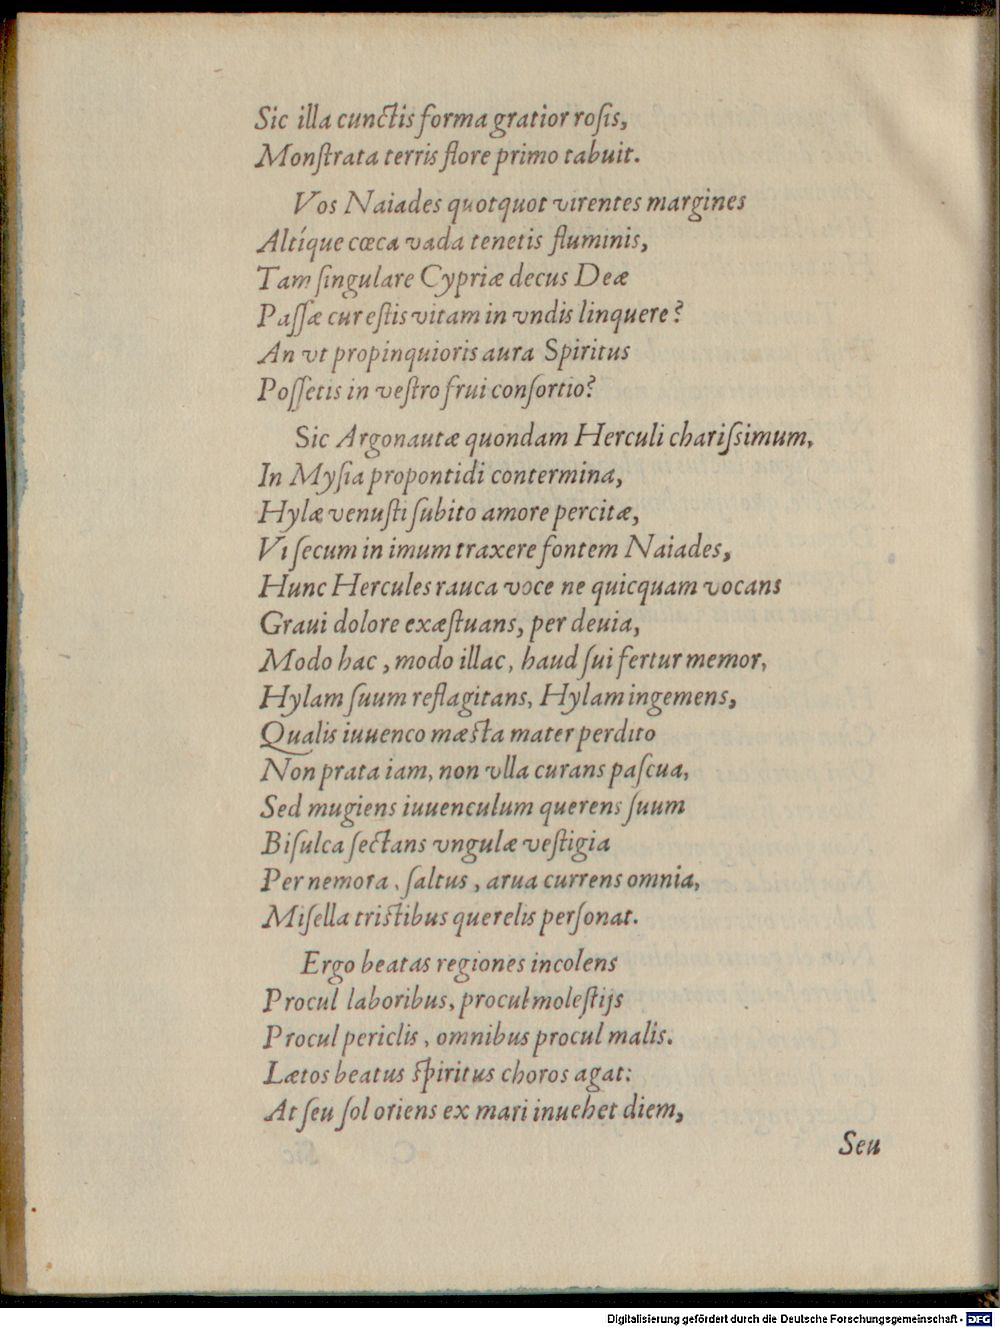 Sic illa cunctis forma gratior rosis,
Monstrata terris flore primo tabuit.
Vos Naiades quotquot virentes margines
Altíque cœca vada tenetis fluminis,
Tam singulare Cypriæ decus Deæ
Passæ cur estis vitam in vndis linquere?
An vt propinquioris aura Spiritus
Possetis in vestro frui consortio?
Sic Argonautæ quondam Herculi charissimum,
In Mysia propontidi contermina,
Hylæ venusti subito amore percitæ,
Vi secum in imum traxere fontem Naiades,
Hunc Hercules rauca voce ne quicquam vocans
Graui dolore exæstuans, per deuia,
Modo hac, modo illac, haud sui fertur memor,
Hylam suum reflagitans, Hylam ingemens,
Qualis iuuenco mæsta mater perdito
Non prata iam, non vlla curans pascua,
Sed mugiens iuuenculum querens suum
Bisulca sectans vngulæ vestigia
Per nemora, saltus, arua currens omnia,
Misella tristibus querelis personat.
Ergo beatas regiones incolens
Procul laboribus, procul molestijs
Procul periclis, omnibus procul malis.
Lætos beatus spiritus choros agat:
At seu sol oriens ex mari inuehet diem,
Seu
Digitalisierung gefördert durch die Deutsche Forschungsgemeinschaft - DFG